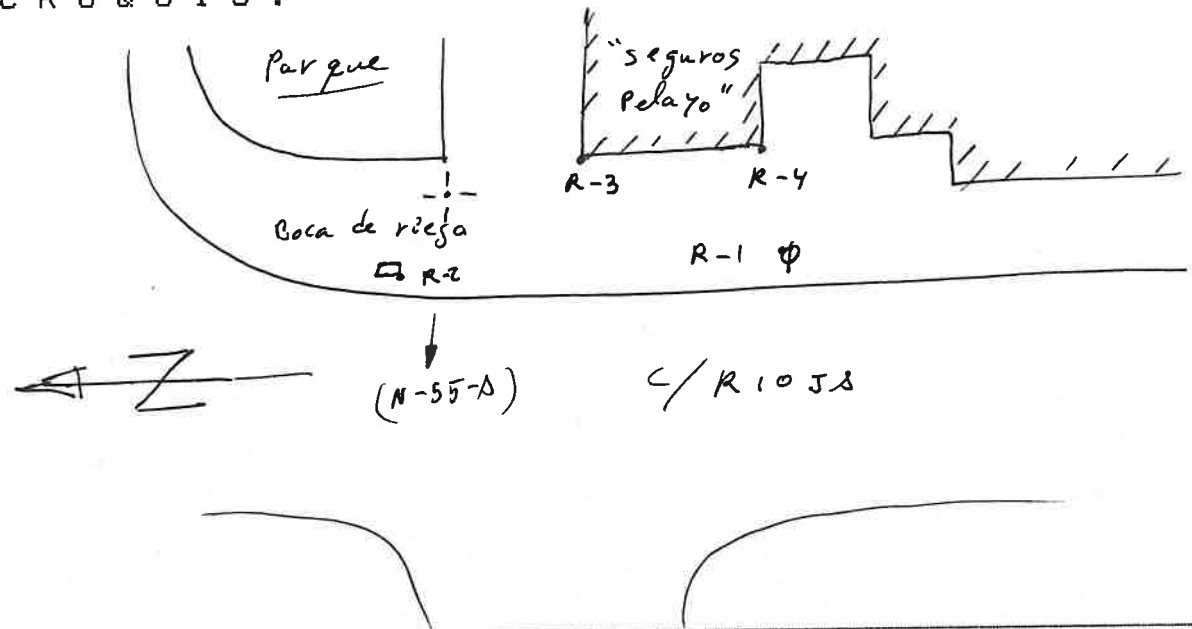 CROQUIS:
Parque
"Seguros
Pelayo"
R-3
R-4
Boca de riego
R-2
R-1
N
(N-55-A)
C/ RIOJA